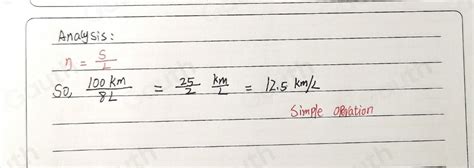 Analysis:
η = S/L
So, 100 km/8L = 25/2 km/L = 12.5 km/L
Simple operation